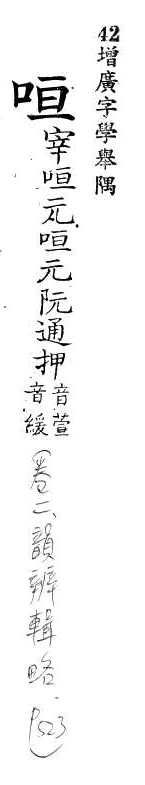 42增廣字學舉隅
咺宰咺元咺元阮通押音萱音緩
(卷二、韻辨輯略.P523)